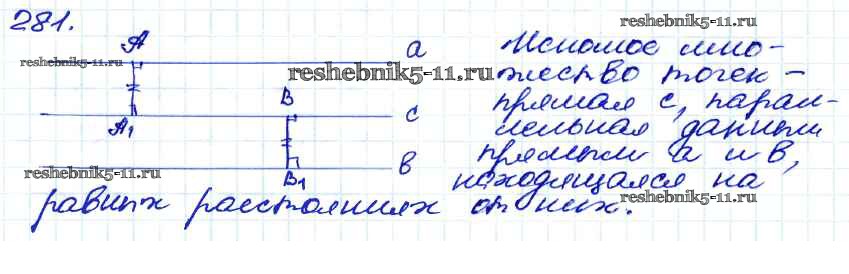 281.
reshebnik5-11.ru
A a Искомое мно-
reshebnik5-11.ru reshebnik5-11.ru жество точек –
B прямая c, парал-
A₁ c лельная данным
reshebnik5-11.ru B₁ b прямым a и b,
находящаяся на
равных расстояниях от них.
reshebnik5-11.ru